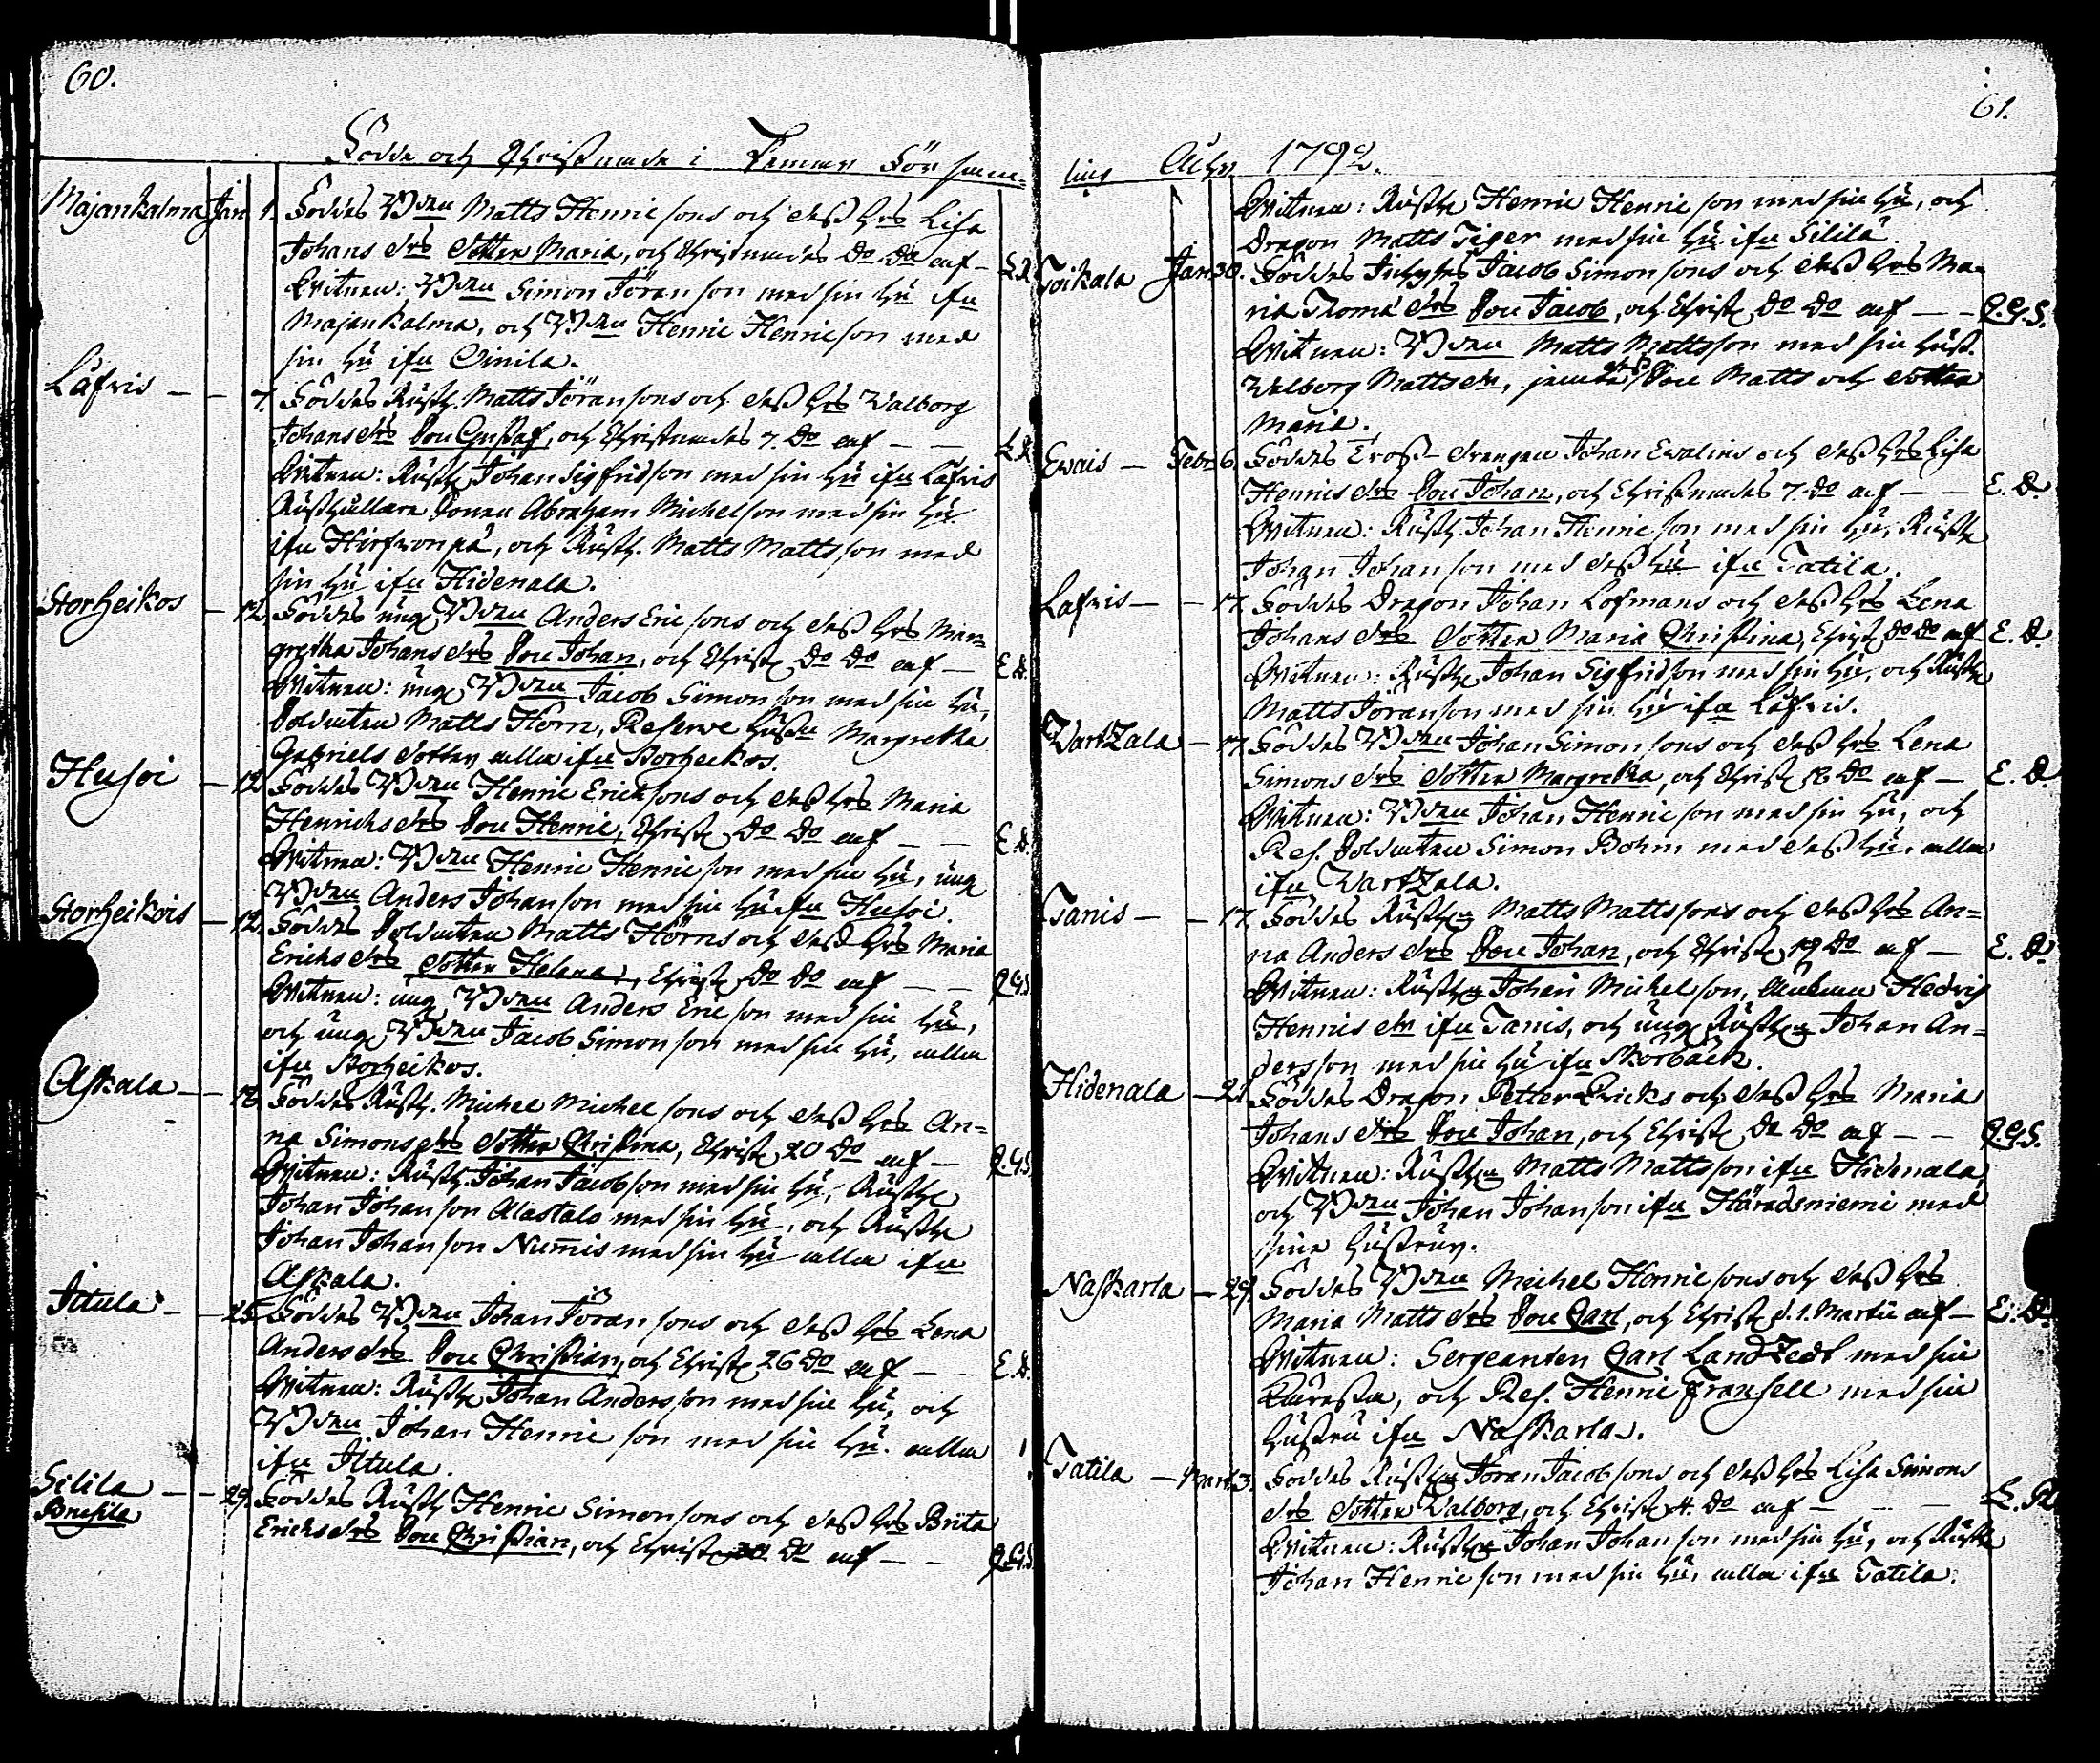 60.
Födde och Christnade i Lemun Försam-
Majankalma Jan. 1. Föddes Bden Matts Henricsons och dess hrs Lisa
Johans drs dotter Maria, och Christnades do do af — E. D.
Vitnen: Bden Simon Jöransson med sin hu ifrn
Majankalma, och Bden Henric Henricson med
sin hu ifrn
Läfvis — — 7. Föddes Rusth. Matts Jöransons och dess hrs Walborg
Johans drs Son Gustaf, och Christnades 7. do af — — E. D.
Vitnen: Rusth. Johan Sigfridson med sin hu ifrn Läfvis
Rusthållare Sonen Abraham Michelson med sin hu
ifrn Hirfvonpä, och Rusth. Matts Mattsson med
sin hu ifrn Hidenala.
Storheikos — 12. Föddes ung Bden Anders Ericsons och dess hrs Mar-
gretha Johans drs Son Johan, och Christ. do do af — E. D.
Vitnen: ung Bden Jacob Simonson med sin hu,
Soldaten Matts Hörn, Reserve hustru Margretha
Gabriels dotter alla ifrn Storheikos.
Husoi — 12. Föddes Bden Henric Ericksons och dess hrs Maria
Henrichs drs Son Henric, Christ. do do af — — E. D.
Vitnen: Bden Henric Henricson med sin hu, ung
Bden Anders Johanson med sin hu ifrn Husoi.
Storheikois — 12. Föddes Soldaten Matts Hörns och dess hrs Maria
Erichs drs dotter Helena, Christ. do do af — — Q. G. S.
Vitnen: ung Bden Anders Ericson med sin hu,
och ung Bden Jacob Simonson med sin hu, alla
ifrn Storheikos.
Askala — — 18. Föddes Rusth. Michel Michelsons och dess hrs An-
na Simons drs dotter Christina, Christ. 20 do af — Q. G. S.
Vitnen: Rusth. Johan Jacobson med sin hu, Rusth.
Johan Johanson Alastalo med sin hu, och Rusth.
Johan Johanson Numis med sin hu alla ifrn
Askala.
Ittula — — 25. Föddes Bden Johan Jöransons och dess hrs Lena
Anders drs Son Christian, och Christ. 26 do af — — E. D.
Vitnen: Rusth. Johan Andersson med sin hu, och
Bden Johan Henricson med sin hu. alla
ifrn Ittula.
Silila — — 29. Föddes Rusth. Henric Simonsons och dess hrs Brita
Erichs drs Son Christian, och Christ. 30 do af — — Q. G. S.
61.
ling Åhr 1792.
Vitnen: Rusth. Henric Henricson med sin hu, och
Dragon Matts Tiger med sin hu ifrn Silila.
Toikala Jan. 30. Föddes Jacob Simonsons och dess hrs Ma-
ria Thomæ drs Son Jacob, och Christ. do do af — — Q. G. S.
Vitnen: Bden Matts Mattsson med sin hust.
Walborg Matts dr, jemte dess Son Matts och dotter
Maria.
Ewais — Febr. 6. Föddes Tross-drengen Johan Ewalins och dess hrs Lisa
Henrics drs Son Johan, och Christnades 7. do af — — E. D.
Vitnen: Rusth. Johan Henricson med sin hu, Rusth.
Johan Johanson med dess hu ifrn Tatila.
Lafvis — — 17. Föddes Dragon Johan Lofmans och dess hrs Lena
Johans drs dotter Maria Christina, Christ. do do af — E. D.
Vitnen: Rusth. Johan Sigfridson med sin hu, och Rusth.
Matts Jöranson med sin hu ifrn Läfvis.
Wartzala — 17. Föddes Bden Johan Simonsons och dess hrs Lena
Simons drs dotter Margretha, och Christ. 18 do af — E. D.
Vitnen: Bden Johan Henricson med sin hu, och
Res. Soldaten Simon Bohm med dess hu. alla
ifrn Wartzala.
Tanis — — 17. Föddes Rusth. Matts Mattssons och dess hrs An-
na Anders drs Son Johan, och Christ. 19 do af — E. D.
Vitnen: Rusth. Johan Michelson, Enkan Hedvig
Henrics dr ifrn Tanis, och ung Rusth. Johan An-
dersson med sin hu ifrn Skorbäck.
Hidenala — 21. Föddes Dragon Petter Pricks och dess hrs Maria
Johans drs Son Johan, och Christ. do do af — — Q. G. S.
Vitnen: Rusth. Matts Mattsson ifrn Hidenala,
och Bden Johan Johanson ifrn Häradsniemi med
sina hustrur.
Naskarla — 29. Föddes Bden Michel Henricsons och dess hrs
Maria Matts drs Son Carl, och Christ. d. 1. Martii af — E. D.
Vitnen: Sergeanten Carl Landzedt med sin
och Res. Henric Fransell med sin
hustru ifrn Naskarla.
Tatila — Mart. 3. Föddes Rusth. Jöran Jacobsons och dess hrs Lisa Simons
drs dotter Walborg, och Christ. 4. do af —
Vitnen: Rusth. Johan Johanson med sin hu, och Rusth.
Johan Henricson med sin hu, alla ifrn Tatila.